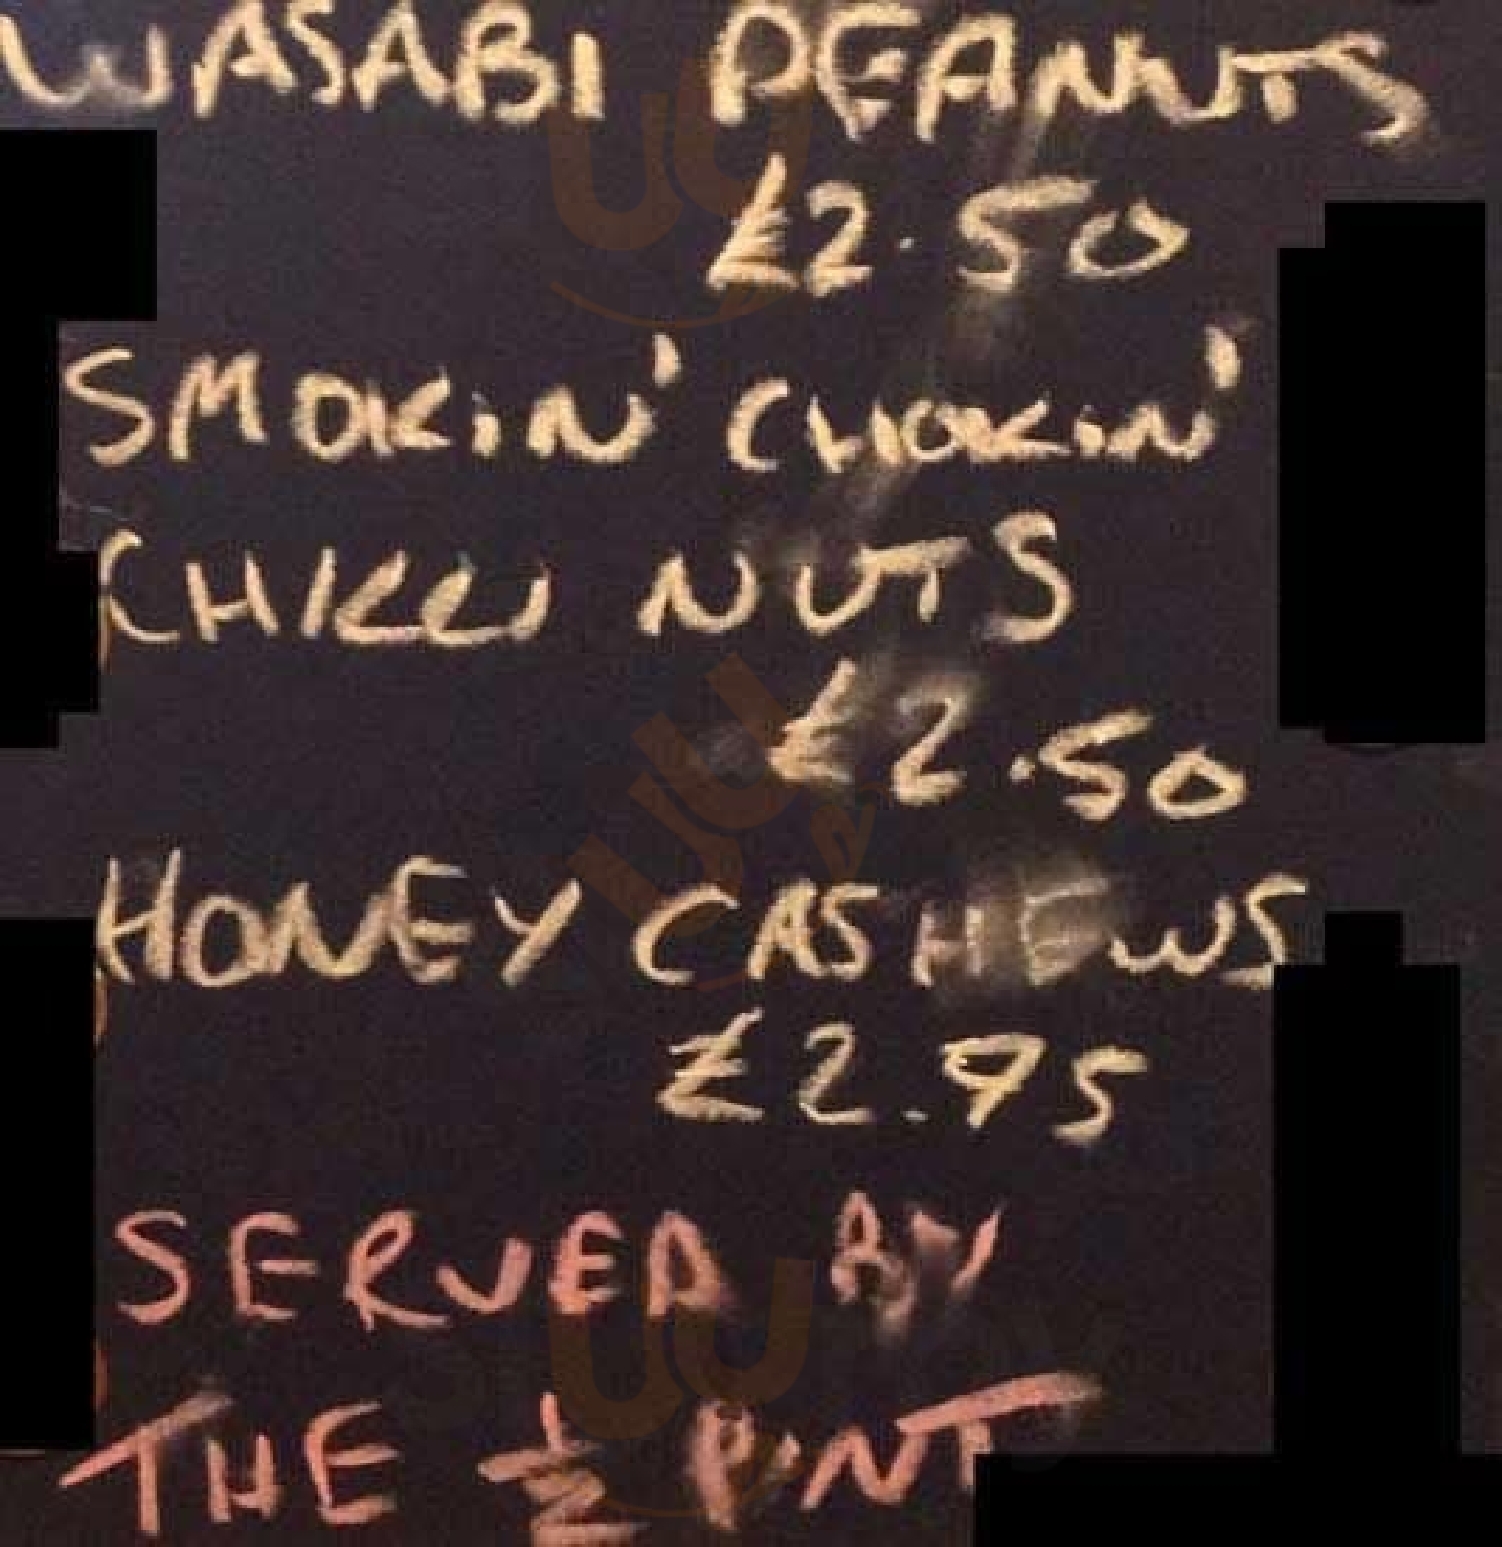 WASABI PEANUTS
£2.50
SMOKIN' CHOKIN'
CHILLI NUTS
£2.50
HONEY CASHEWS
£2.95
SERVED BY
THE ½ PINT